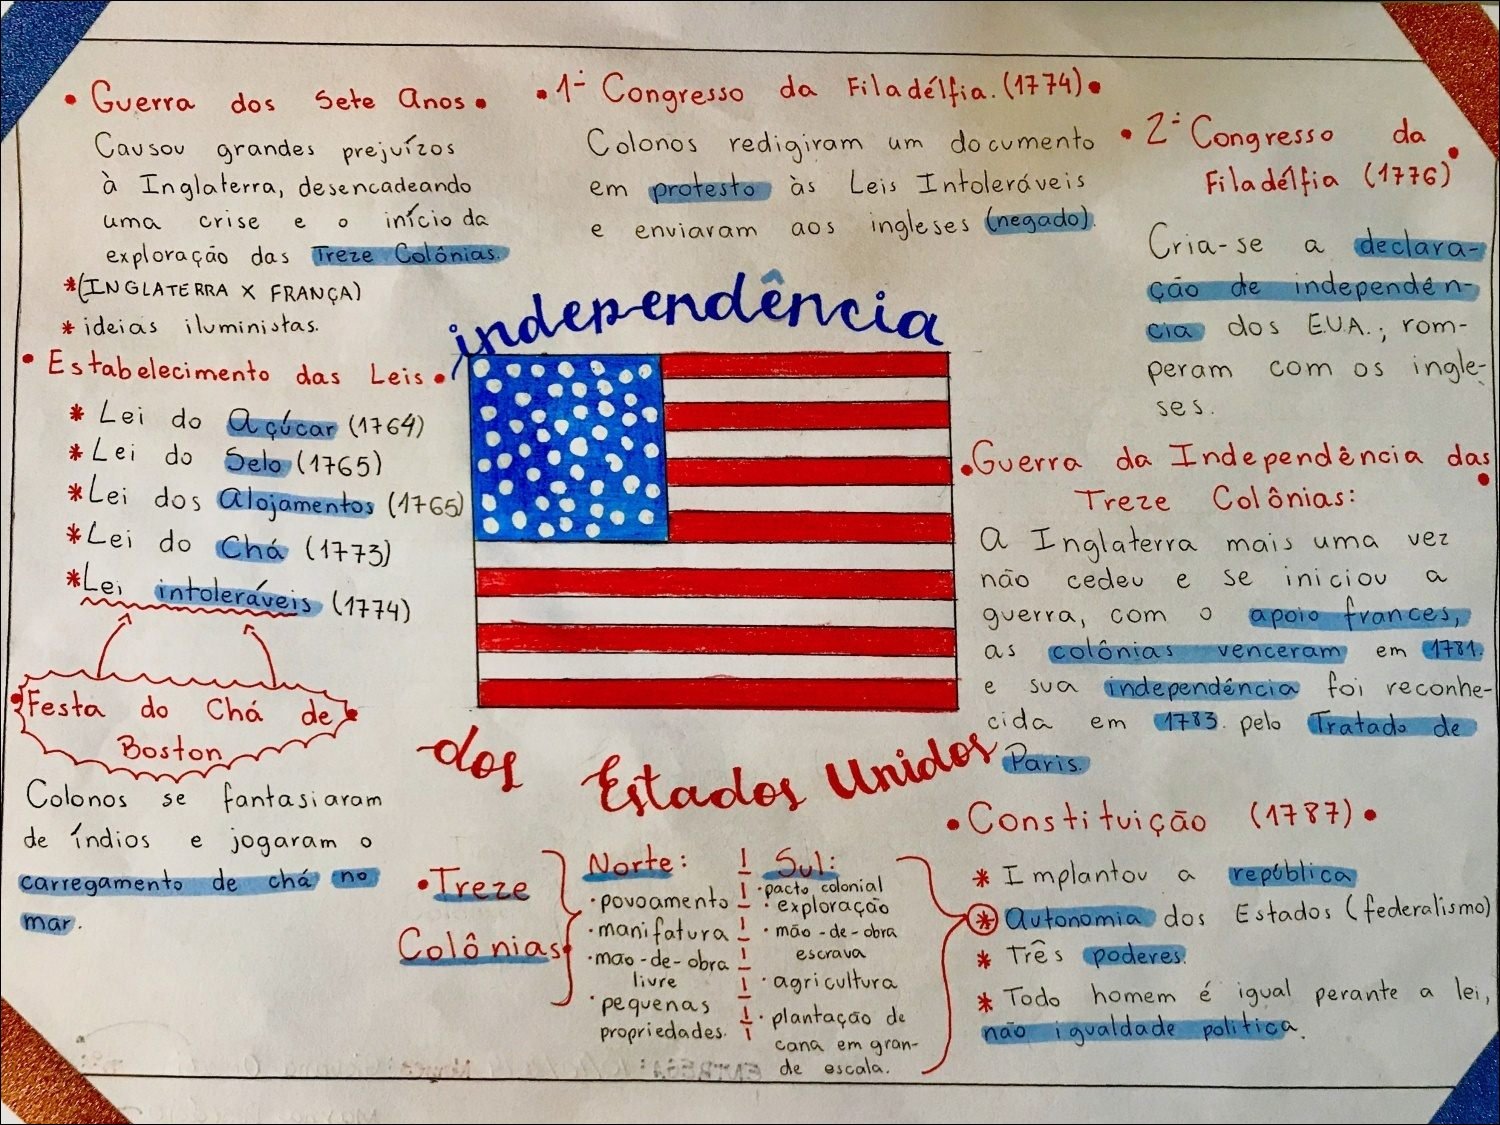 • Guerra dos Sete Anos •
Causou grandes prejuízos
à Inglaterra, desencadeando
uma crise e o início da
exploração das Treze Colônias.
*(INGLATERRA X FRANÇA)
* ideias iluministas.
• Estabelecimento das Leis •
* Lei do Açúcar (1764)
* Lei do Selo (1765)
* Lei dos Alojamentos (1765)
* Lei do Chá (1773)
* Lei intoleráveis (1774)
• Festa do Chá de •
Boston
Colonos se fantasiaram
de índios e jogaram o
carregamento de chá no
mar.
• 1º Congresso da Filadélfia. (1774) •
Colonos redigiram um documento
em protesto às Leis Intoleráveis
e enviaram aos ingleses (negado).
independência
dos Estados Unidos
• Treze
Colônias
Norte:
• povoamento
• manifatura
• mao-de-obra
livre
• pequenas
propriedades.
Sul:
• pacto colonial
• exploração
• mão-de-obra
escrava
• agricultura
• plantação de
cana em gran-
de escala.
• 2º Congresso da
Filadélfia (1776) •
Cria-se a declara-
ção de independên-
cia dos E.U.A.; rom-
peram com os ingle-
ses.
• Guerra da Independência das
Treze Colônias: •
A Inglaterra mais uma vez
não cedeu e se iniciou a
guerra, com o apoio frances,
as colônias venceram em 1781.
e sua independência foi reconhe-
cida em 1783. pelo Tratado de
Paris.
• Constituição (1787) •
* Implantou a república
* Autonomia dos Estados (federalismo)
* Três poderes.
* Todo homem é igual perante a lei,
não igualdade politica.